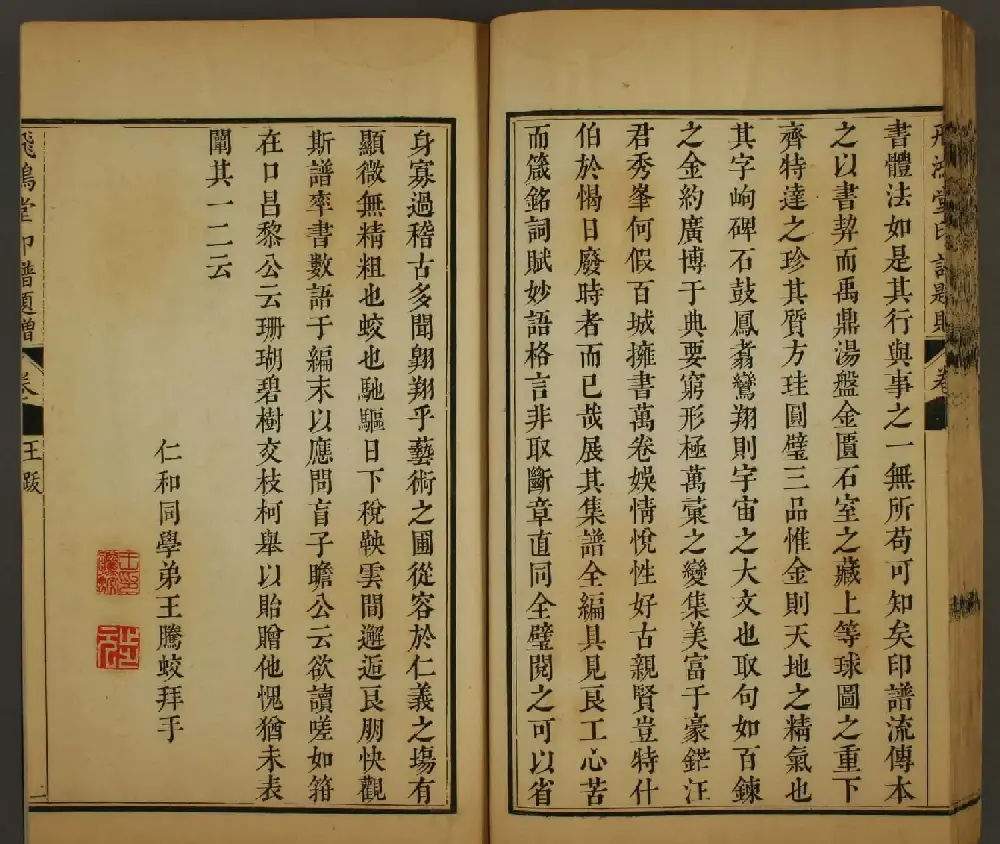 書體法如是其行與事之一無所苟可知矣印譜流傳本
之以書契而禹鼎湯盤金匱石室之藏上等球圖之重下
齊特達之珍其質方珪圓璧三品惟金則天地之精氣也
其字岣碑石鼓鳳翥鸞翔則宇宙之大文也取句如百鍊
之金約廣博于典要窮形極萬彚之變集美富于豪鋩汪
君秀峯何假百城擁書萬卷娛情悅性好古親賢豈特什
伯於愒日廢時者而已哉展其集譜全編具見良工心苦
而箴銘詞賦妙語格言非取斷章直同全璧閱之可以省
身寡過稽古多聞翺翔乎藝術之圃從容於仁義之塲有
顯微無精粗也蛟也馳驅日下稅鞅雲間邂逅良朋快觀
斯譜率書數語于編末以應問盲子瞻公云欲讀嗟如箝
在口昌黎公云珊瑚碧樹交枝柯舉以貽贈他愧猶未表
闡其一二云
仁和同學弟王騰蛟拜手
飛鴻堂印譜題贈
卷
王跋